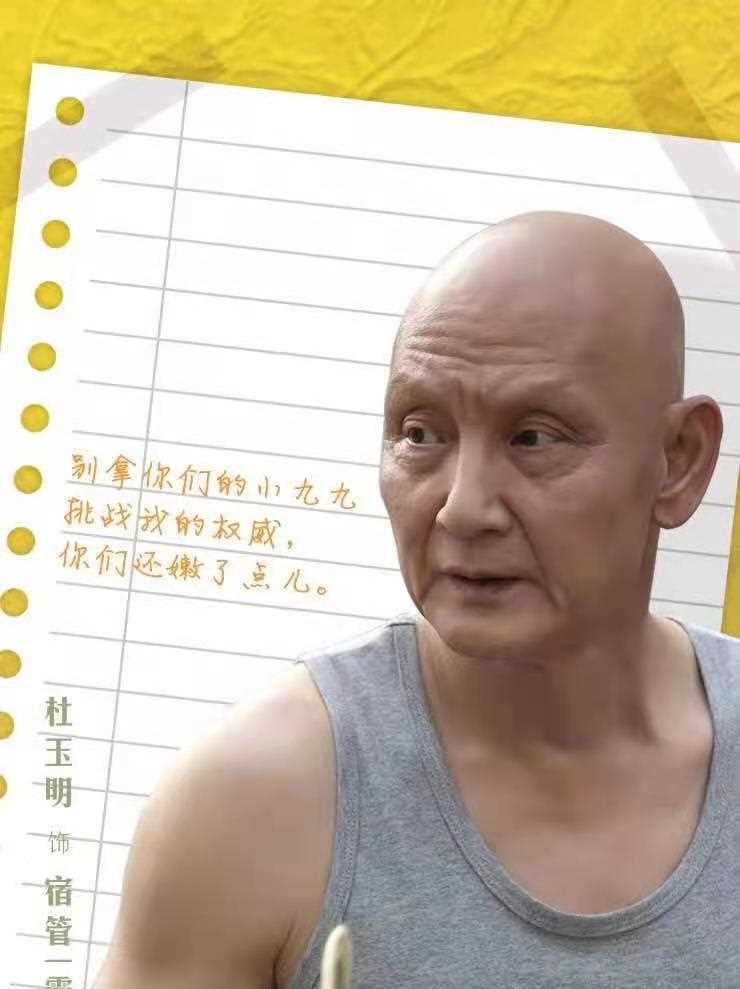 别拿你们的小九九
挑战我的权威，
你们还嫩了点儿。
杜玉明 饰 宿管一